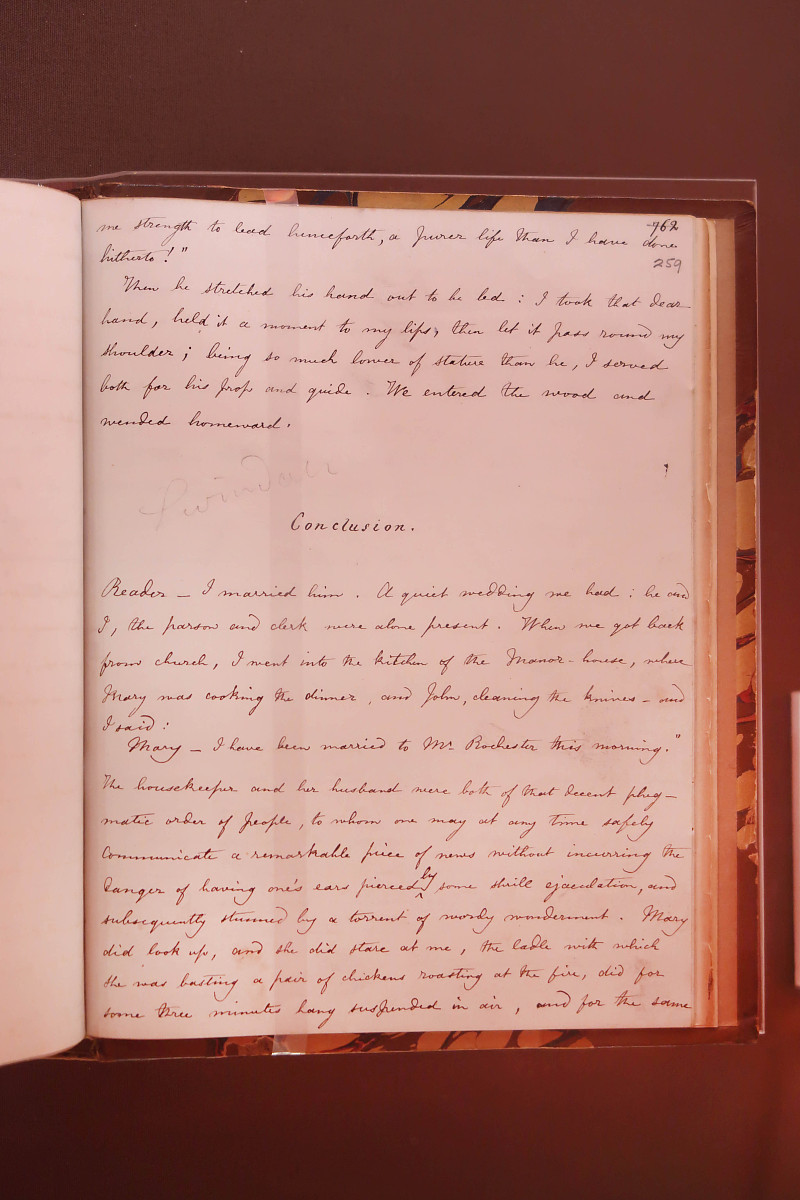 762
me strength to lead henceforth, a purer life than I have done
259
hitherto!"
Then he stretched his hand out to be led : I took that dear
hand, held it a moment to my lips, then let it pass round my
shoulder ; being so much lower of stature than he, I served
both for his prop and guide . We entered the wood and
wended homeward .
Conclusion .
Reader — I married him . A quiet wedding we had : he and
I, the parson and clerk were alone present . When we got back
from church, I went into the kitchen of the Manor-house, where
Mary was cooking the dinner, and John, cleaning the knives — and
I said :
Mary — I have been married to Mr Rochester this morning."
The housekeeper and her husband were both of that decent phleg-
matic order of people, to whom one may at any time safely
communicate a remarkable piece of news without incurring the
danger of having one's ears pierced by some shrill ejaculation, and
subsequently stunned by a torrent of wordy wonderment . Mary
did look up, and she did stare at me, the ladle with which
she was basting a pair of chickens roasting at the fire, did for
some three minutes hang suspended in air, and for the same